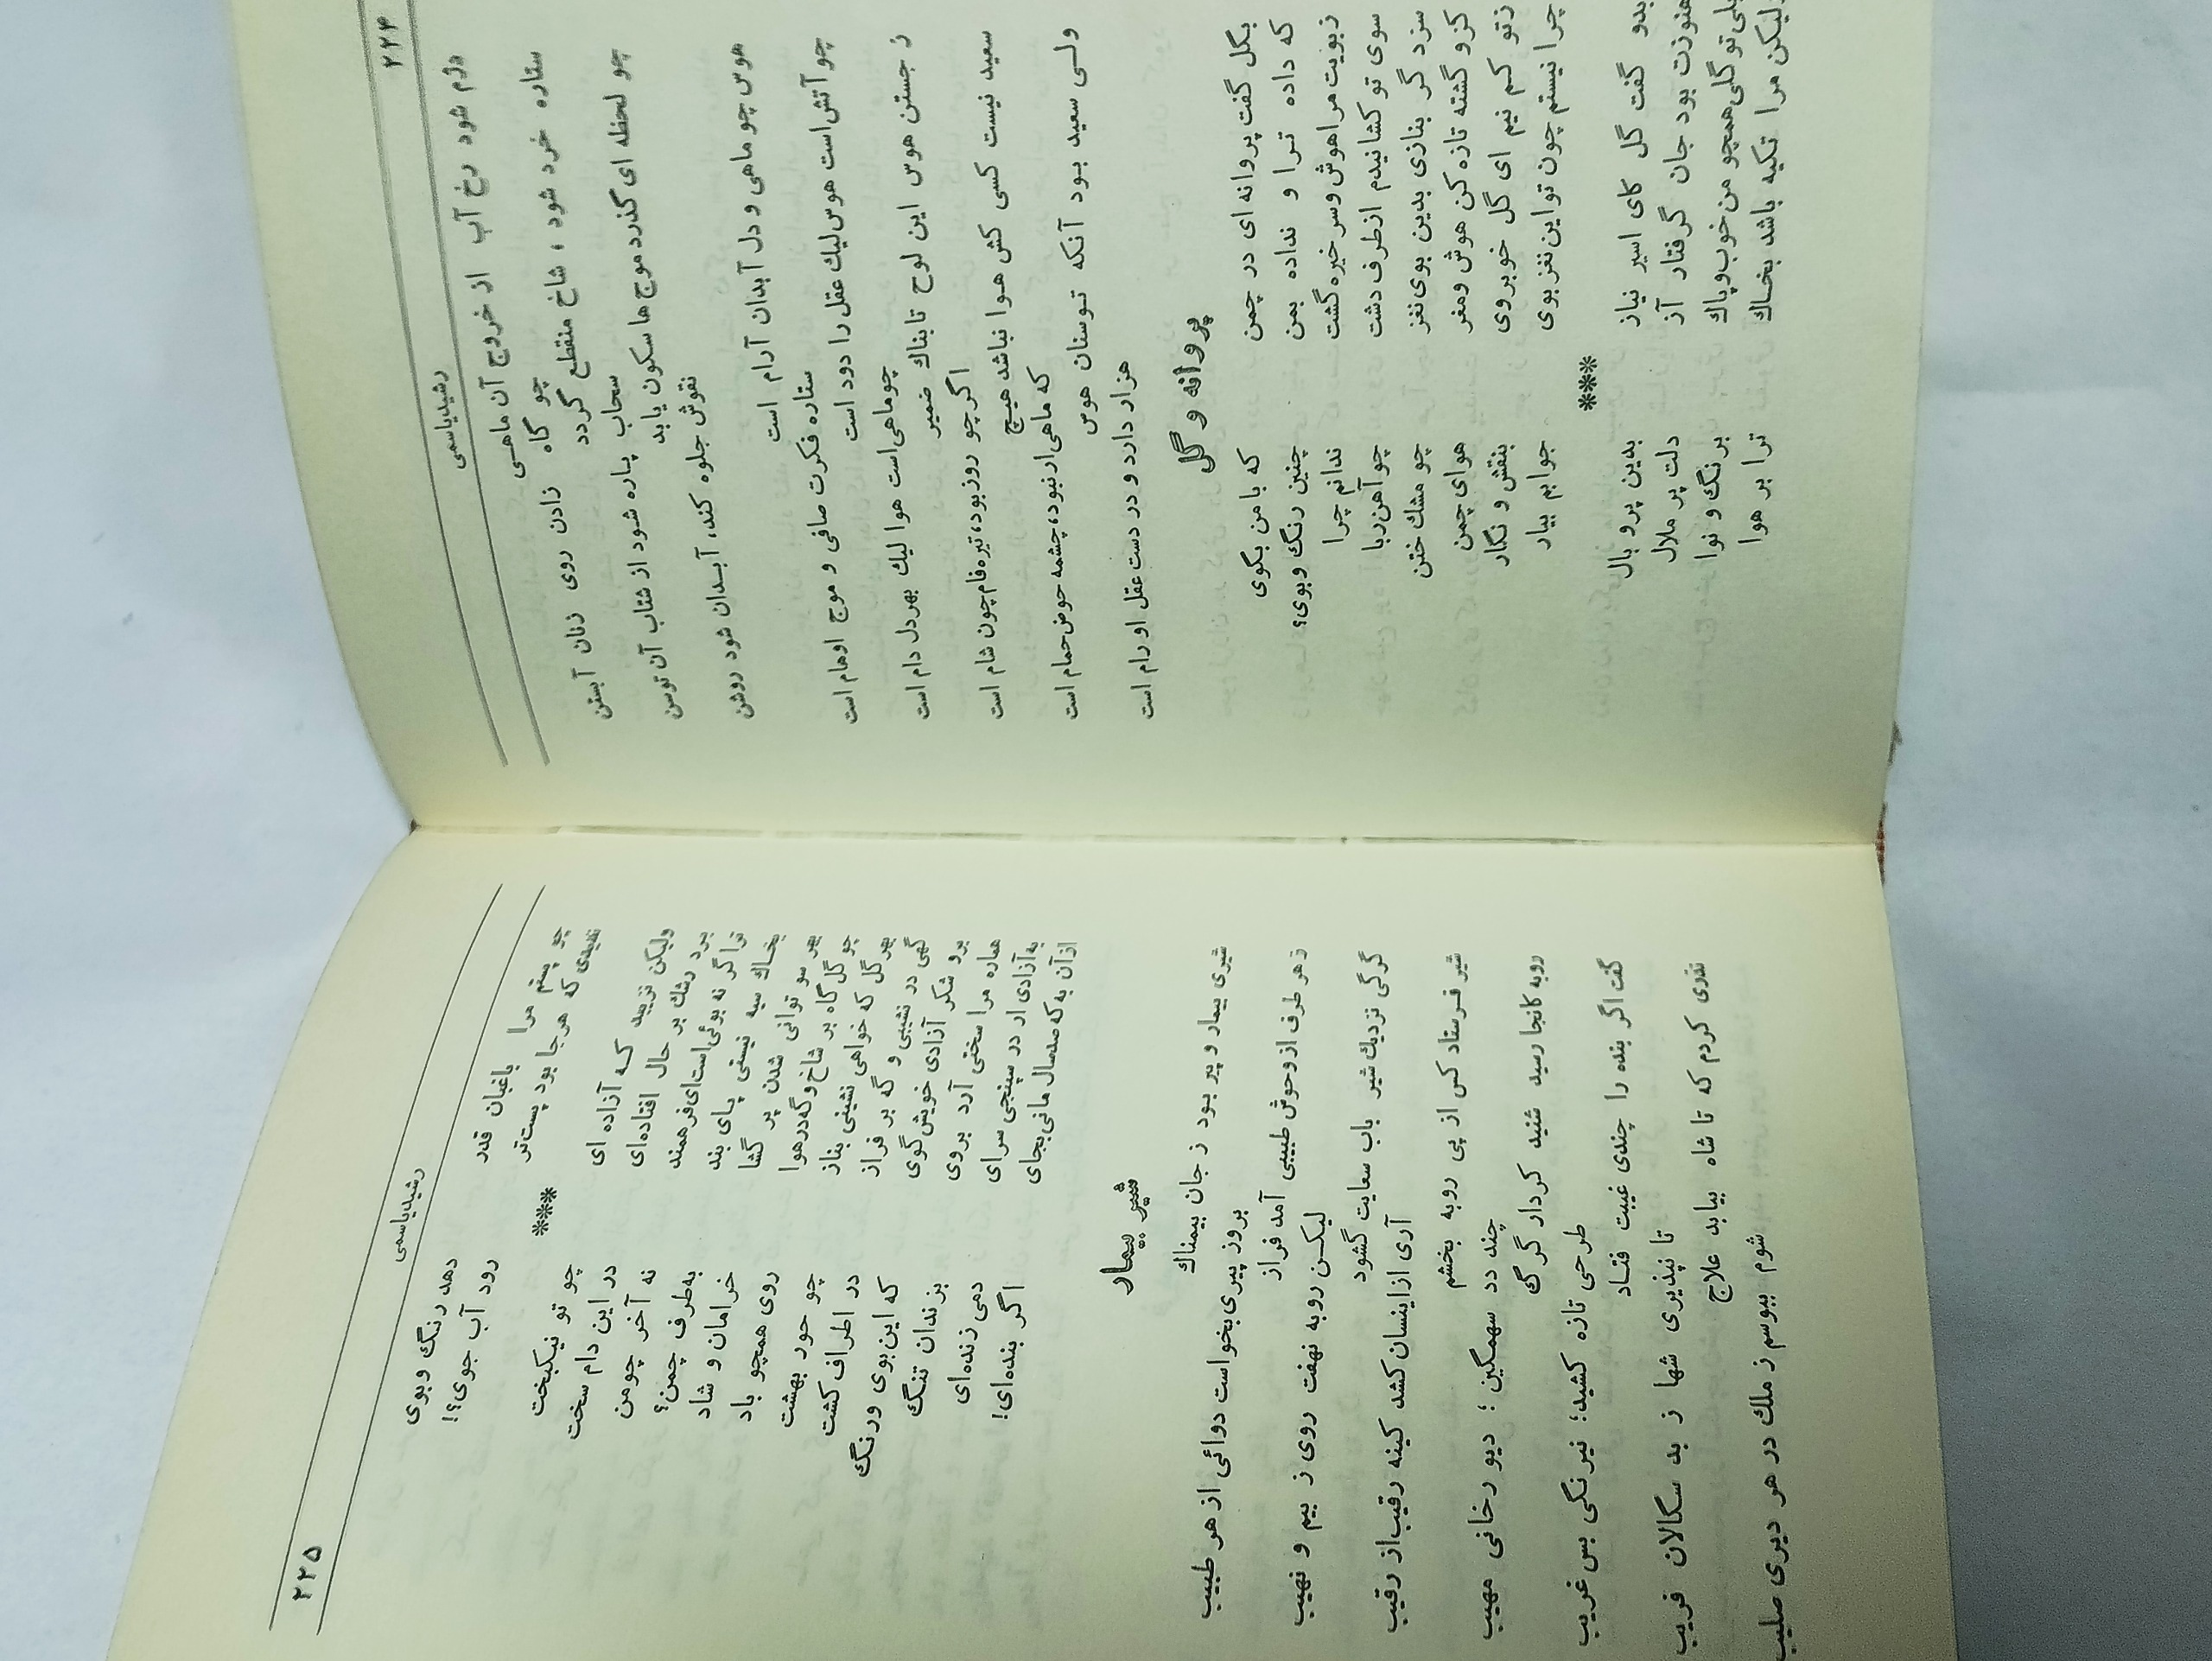 ۲۲۴
رشیدیاسمی
دژم شود رخ آب از خروج آن ماهی
چو گاه زادن روی زنان آبستن
ستاره خرد شود ، شاخ منقطع گردد
سحاب پاره شود از شتاب آن توسن
چو لحظه ای گذرد موج ها سکون یابد
نقوش جلوه کند، آبدان شود روشن
هوس چو ماهی و دل آبدان آرام است
ستاره فکرت صافی و موج اوهام است
چو آتش است هوس لیك عقل را دود است
چو ماهی است هوا لیك بهر دل دام است
ز جستن هوس این لوح تابناك ضمیر
اگر چو روز بود، تیره فام چون شام است
سعید نیست کسی کش هوا نباشد هیچ
که ماهی ار نبود، چشمه حوض حمام است
ولی سعید بود آنکه توسنان هوس
هزار دارد و در دست عقل او رام است
پروانه و گل
بگل گفت پروانه ای در چمن که با من بگوی
که داده ترا و نداده بمن چنین رنگ و بوی؟
ز بویت مرا هوش و سر خیره گشت ندانم چرا
سوی تو کشانیدم از طرف دشت چو آهن ربا
سزد گر بنازی بدین بوی نغز چو مشك ختن
کزو گشته تازه کن هوش و مغز هوای چمن
ز تو کم نیم ای گل خوبروی بنقش و نگار
چرا نیستم چون تو این نغز بوی جوابم بیار
***
بدو گفت گل کای اسیر نیاز بدین پر و بال
هنوزت بود جان گرفتار آز دلت پر ملال
بلی تو گلی همچو من خوب و پاك برنگ و نوا
ولیکن مرا تکیه باشد بخاك ترا بر هوا
۲۲۵
رشیدیاسمی
چو پستم مرا باغبان قدر دهد رنگ و بوی
ندیدی که هر جا بود پست تر رود آب جوی؟!
***
ولیکن نزیبد که آزاده ای چو تو نیکبخت
برد رشك بر حال افتاده ای در این دام سخت
ترا گر نه بوئی است ای فرهمند نه آخر چو من
بخاك سیه نیستی پای بند به طرف چمن؟
بهر سو توانی شدن پر گشا خرامان و شاد
چو گل گاه بر شاخ و گه در هوا روی همچو باد
بهر گل که خواهی نشینی بناز چو حور بهشت
گهی در نشیبی و گه بر فراز در اطراف کشت
برو شکر آزادی خویش گوی که این بوی و رنگ
هماره مرا سختی آرد بروی بزندان تنگ
به آزادی ار در سپنجی سرای دمی زنده ای
از آن به که صد سال مانی بجای اگر بنده ای!
شیر بیمار
شیری بیمار و پیر بود ز جان بیمناك
بروز پیری بخواست دوائی از هر طبیب
ز هر طرف از وحوش طبیبی آمد فراز
لیکن روبه نهفت روی ز بیم و نهیب
گرگی نزدیك شیر باب سعایت گشود
آری از اینسان کشد کینه رقیب از رقیب
شیر فرستاد کس از پی روبه بخشم
چند دد سهمگین ؛ دیو رخانی مهیب
روبه کانجا رسید شنید کردار گرگ
طرحی تازه کشید؛ نیرنگی بس غریب
گفت اگر بنده را چندی غیبت فتاد
تا نپذیری شها ز بد سگالان فریب
نذری کردم که تا شاه بیابد علاج
شوم ببوسم ز ملك در هر دیری صلیب